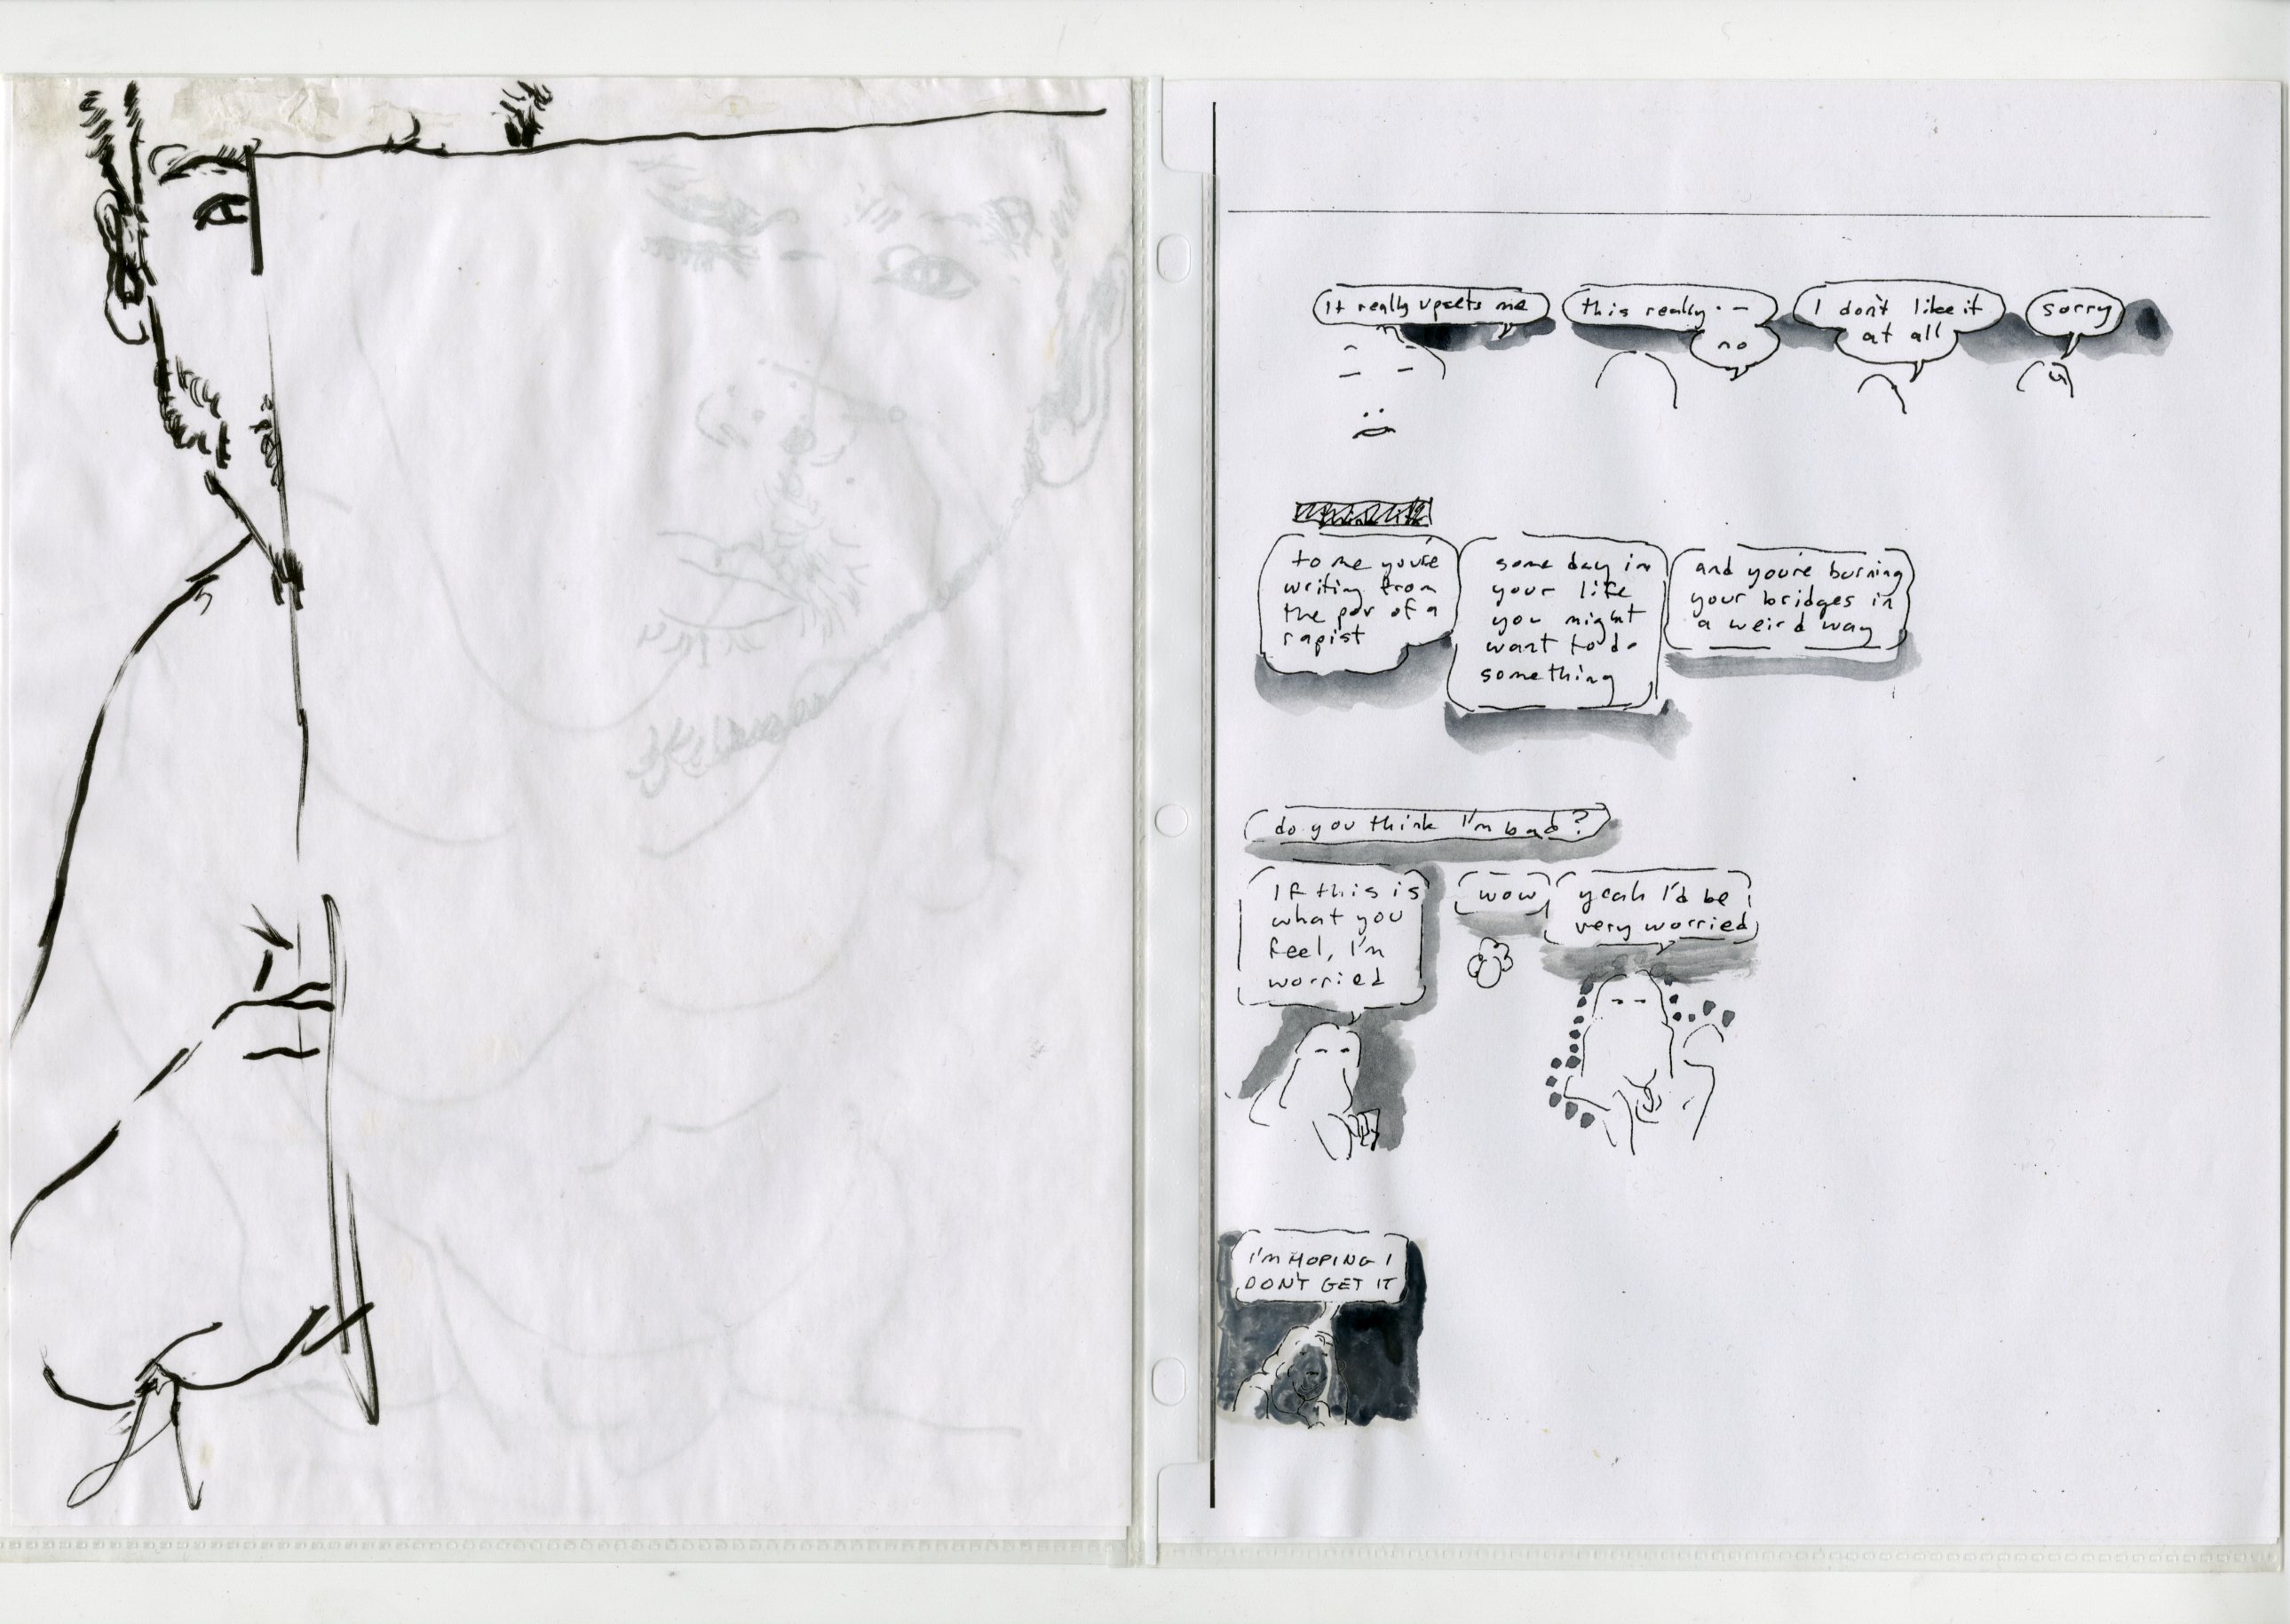 It really upsets me
this really · –
no
I don't like it
at all
sorry
to me you're
writing from
the pov of a
rapist
some day in
your life
you might
want to do
something
and you're burning
your bridges in
a weird way
do you think I'm bad?
If this is
what you
feel, I'm
worried
wow
yeah I'd be
very worried
I'M HOPING I
DON'T GET IT